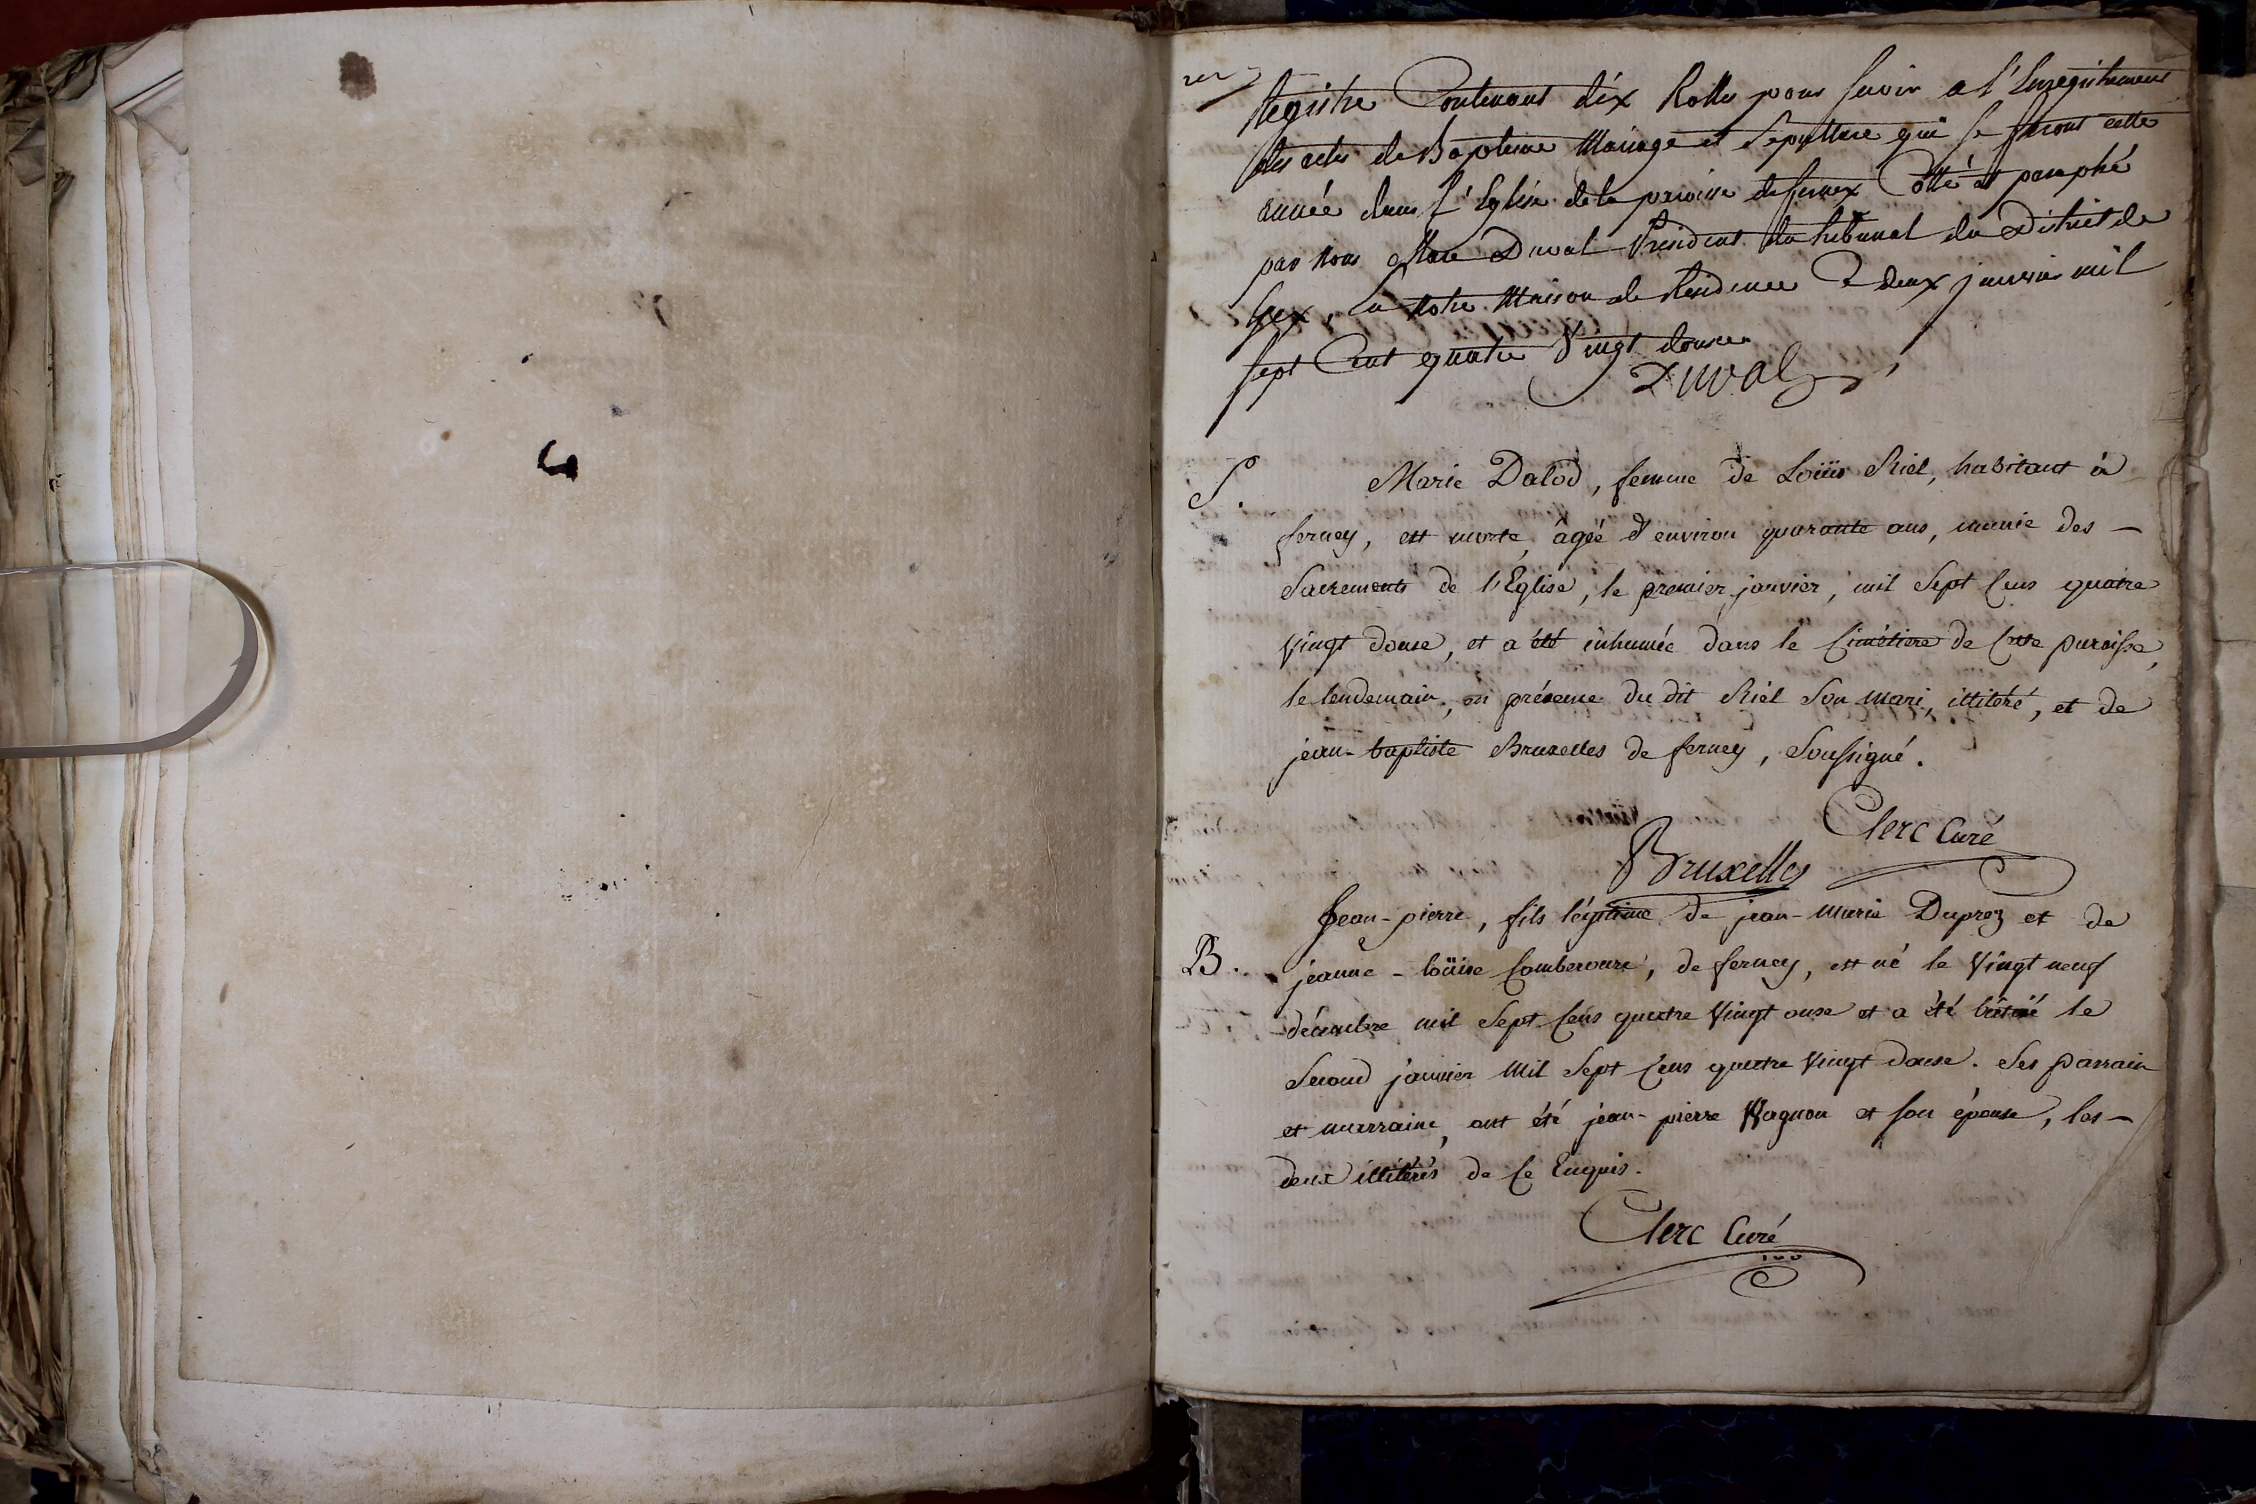 Registre Contenant dix Rolles pour servir a l'Enregistrement
des actes de Bapteme Mariage et Sepulture qui se feront cette
année dans l'Eglise de la paroisse de fernex Cotté et paraphé
par Nous Marc Duval President du tribunal du District de
Gex, En Notre Maison de Residence Ce deux janvier mil
sept Cent quatre Vingt douze.
Duval
S.
Marie Dalod, femme de Loüis Riel, habitant à
ferney, est morte, âgée d'environ quarante ans, munie des
Sacrements de l'Eglise, le premier janvier, mil Sept Cens quatre
Vingt douse, et a été inhumée dans le Cimétiere de Cette paroisse,
le lendemain, en présence du dit Riel Son mari, illitéré, et de
jean-baptiste Bruxelles de ferney, Soussigné.
Clerc Curé
Bruxelles
B.
Jean-pierre, fils légitime de jean-marie Duproz et de
jeanne-loüise, de ferney, est né le Vingt neuf
décembre mil Sept Cens quatre Vingt onse et a été bâtisé le
Second janvier Mil Sept Cens quatre Vingt douse. Ses parrain
et marraine, ont été jean-pierre Wagnon et son épouse, les
deux illitérés de Ce Enquis.
Clerc Curé